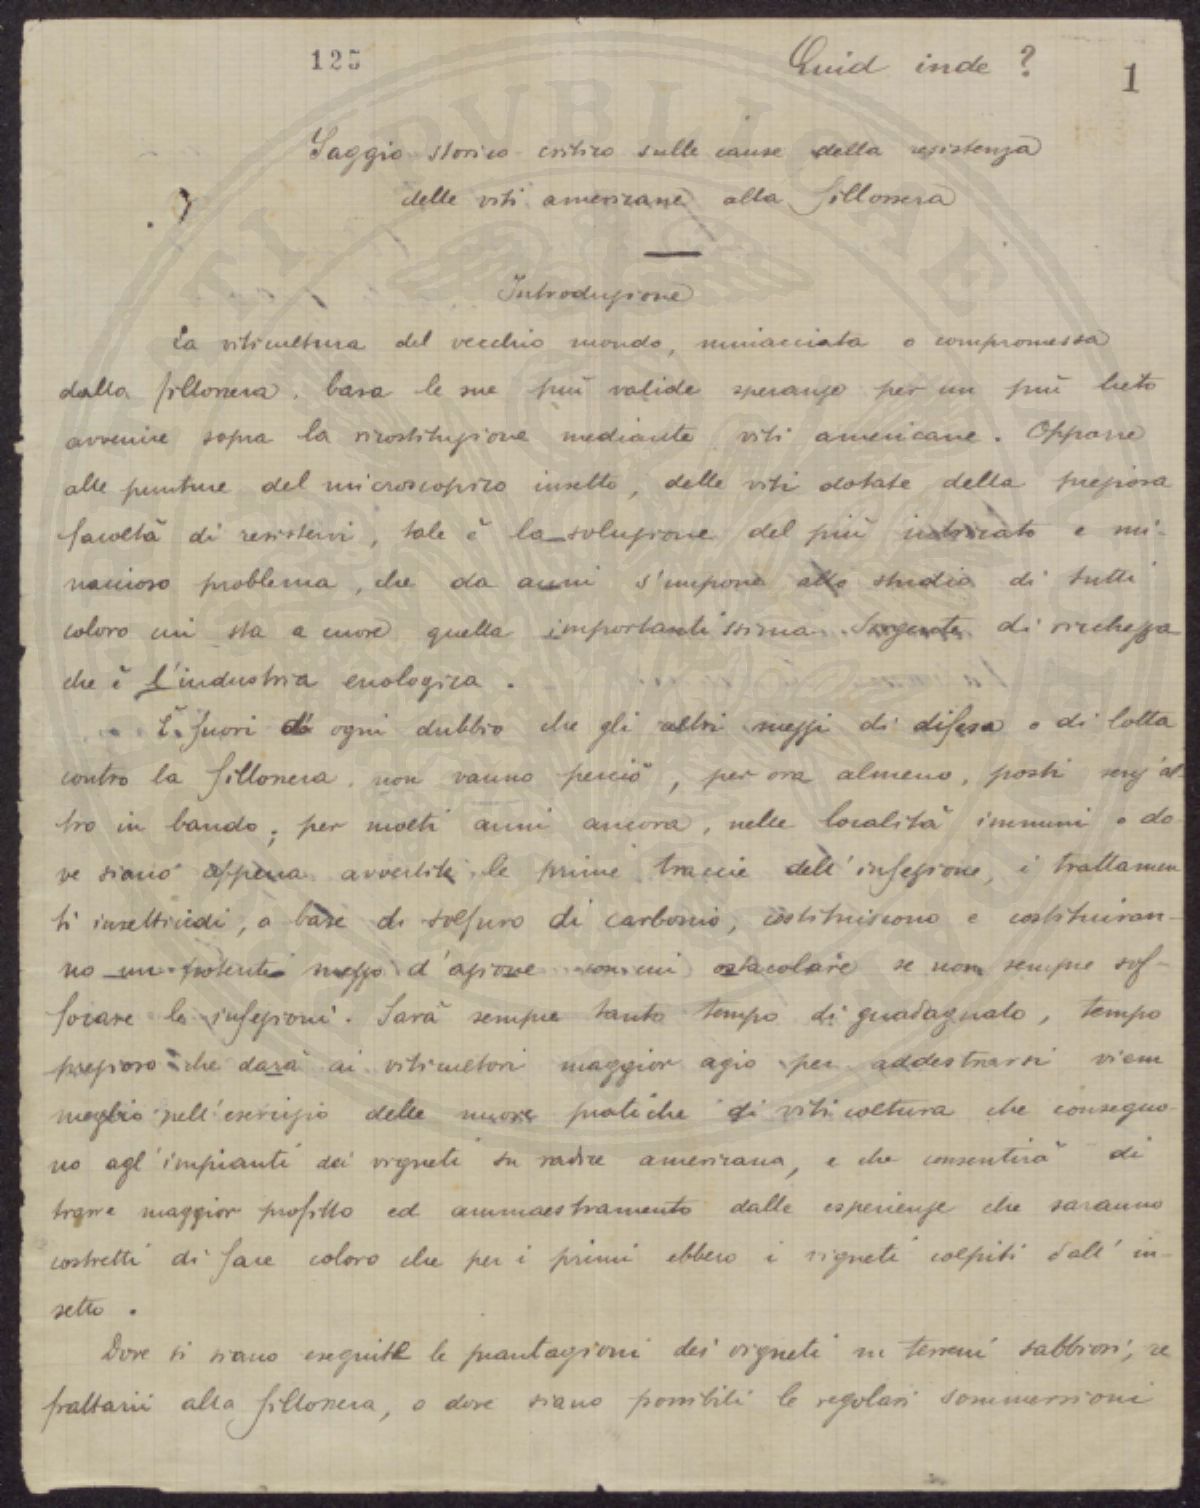 125
Quid inde ?
1
Saggio storico critico sulle cause della resistenza
delle viti americane alla fillossera
Introduzione
La viticultura del vecchio mondo, minacciata o compromessa
dalla fillossera, basa le sue più valide speranze per un più lieto
avvenire sopra la ricostituzione mediante viti americane. Opporre
alle punture del microscopico insetto, delle viti dotate della preziosa
facoltà di resistervi, tale è la soluzione del più intricato e mi-
naccioso problema, che da anni s'impone allo studio di tutti
coloro cui sta a cuore quella importantissima Sorgente di ricchezza
che è l'industria enologica.
È fuori di ogni dubbio che gli altri mezzi di difesa o di lotta
contro la fillossera, non vanno perciò, per ora almeno, posti senz'al-
tro in bando; per molti anni ancora, nelle località immuni o do
ve siano appena avvertite le prime traccie dell'infezione, i trattamen
ti insetticidi, a base di solfuro di carbonio, costituiscono e costituiran-
no un potente mezzo d'azione con cui ostacolare se non sempre sof-
focare le infezioni. Sarà sempre tanto tempo di guadagnato, tempo
prezioso che darà ai viticultori maggior agio per addestrarsi viem
meglio nell'esercizio delle nuove pratiche di viticoltura che conseguo-
no agl'impianti dei vigneti su radice americana, e che consentirà di
trarre maggior profitto ed ammaestramento dalle esperienze che saranno
costretti di fare coloro che per i primi ebbero i vigneti colpiti dall'in-
setto.
Dove si siano eseguite le piantagioni dei vigneti in terreni sabbiosi, re
frattarii alla fillossera, o dove siano possibili le regolari sommersioni